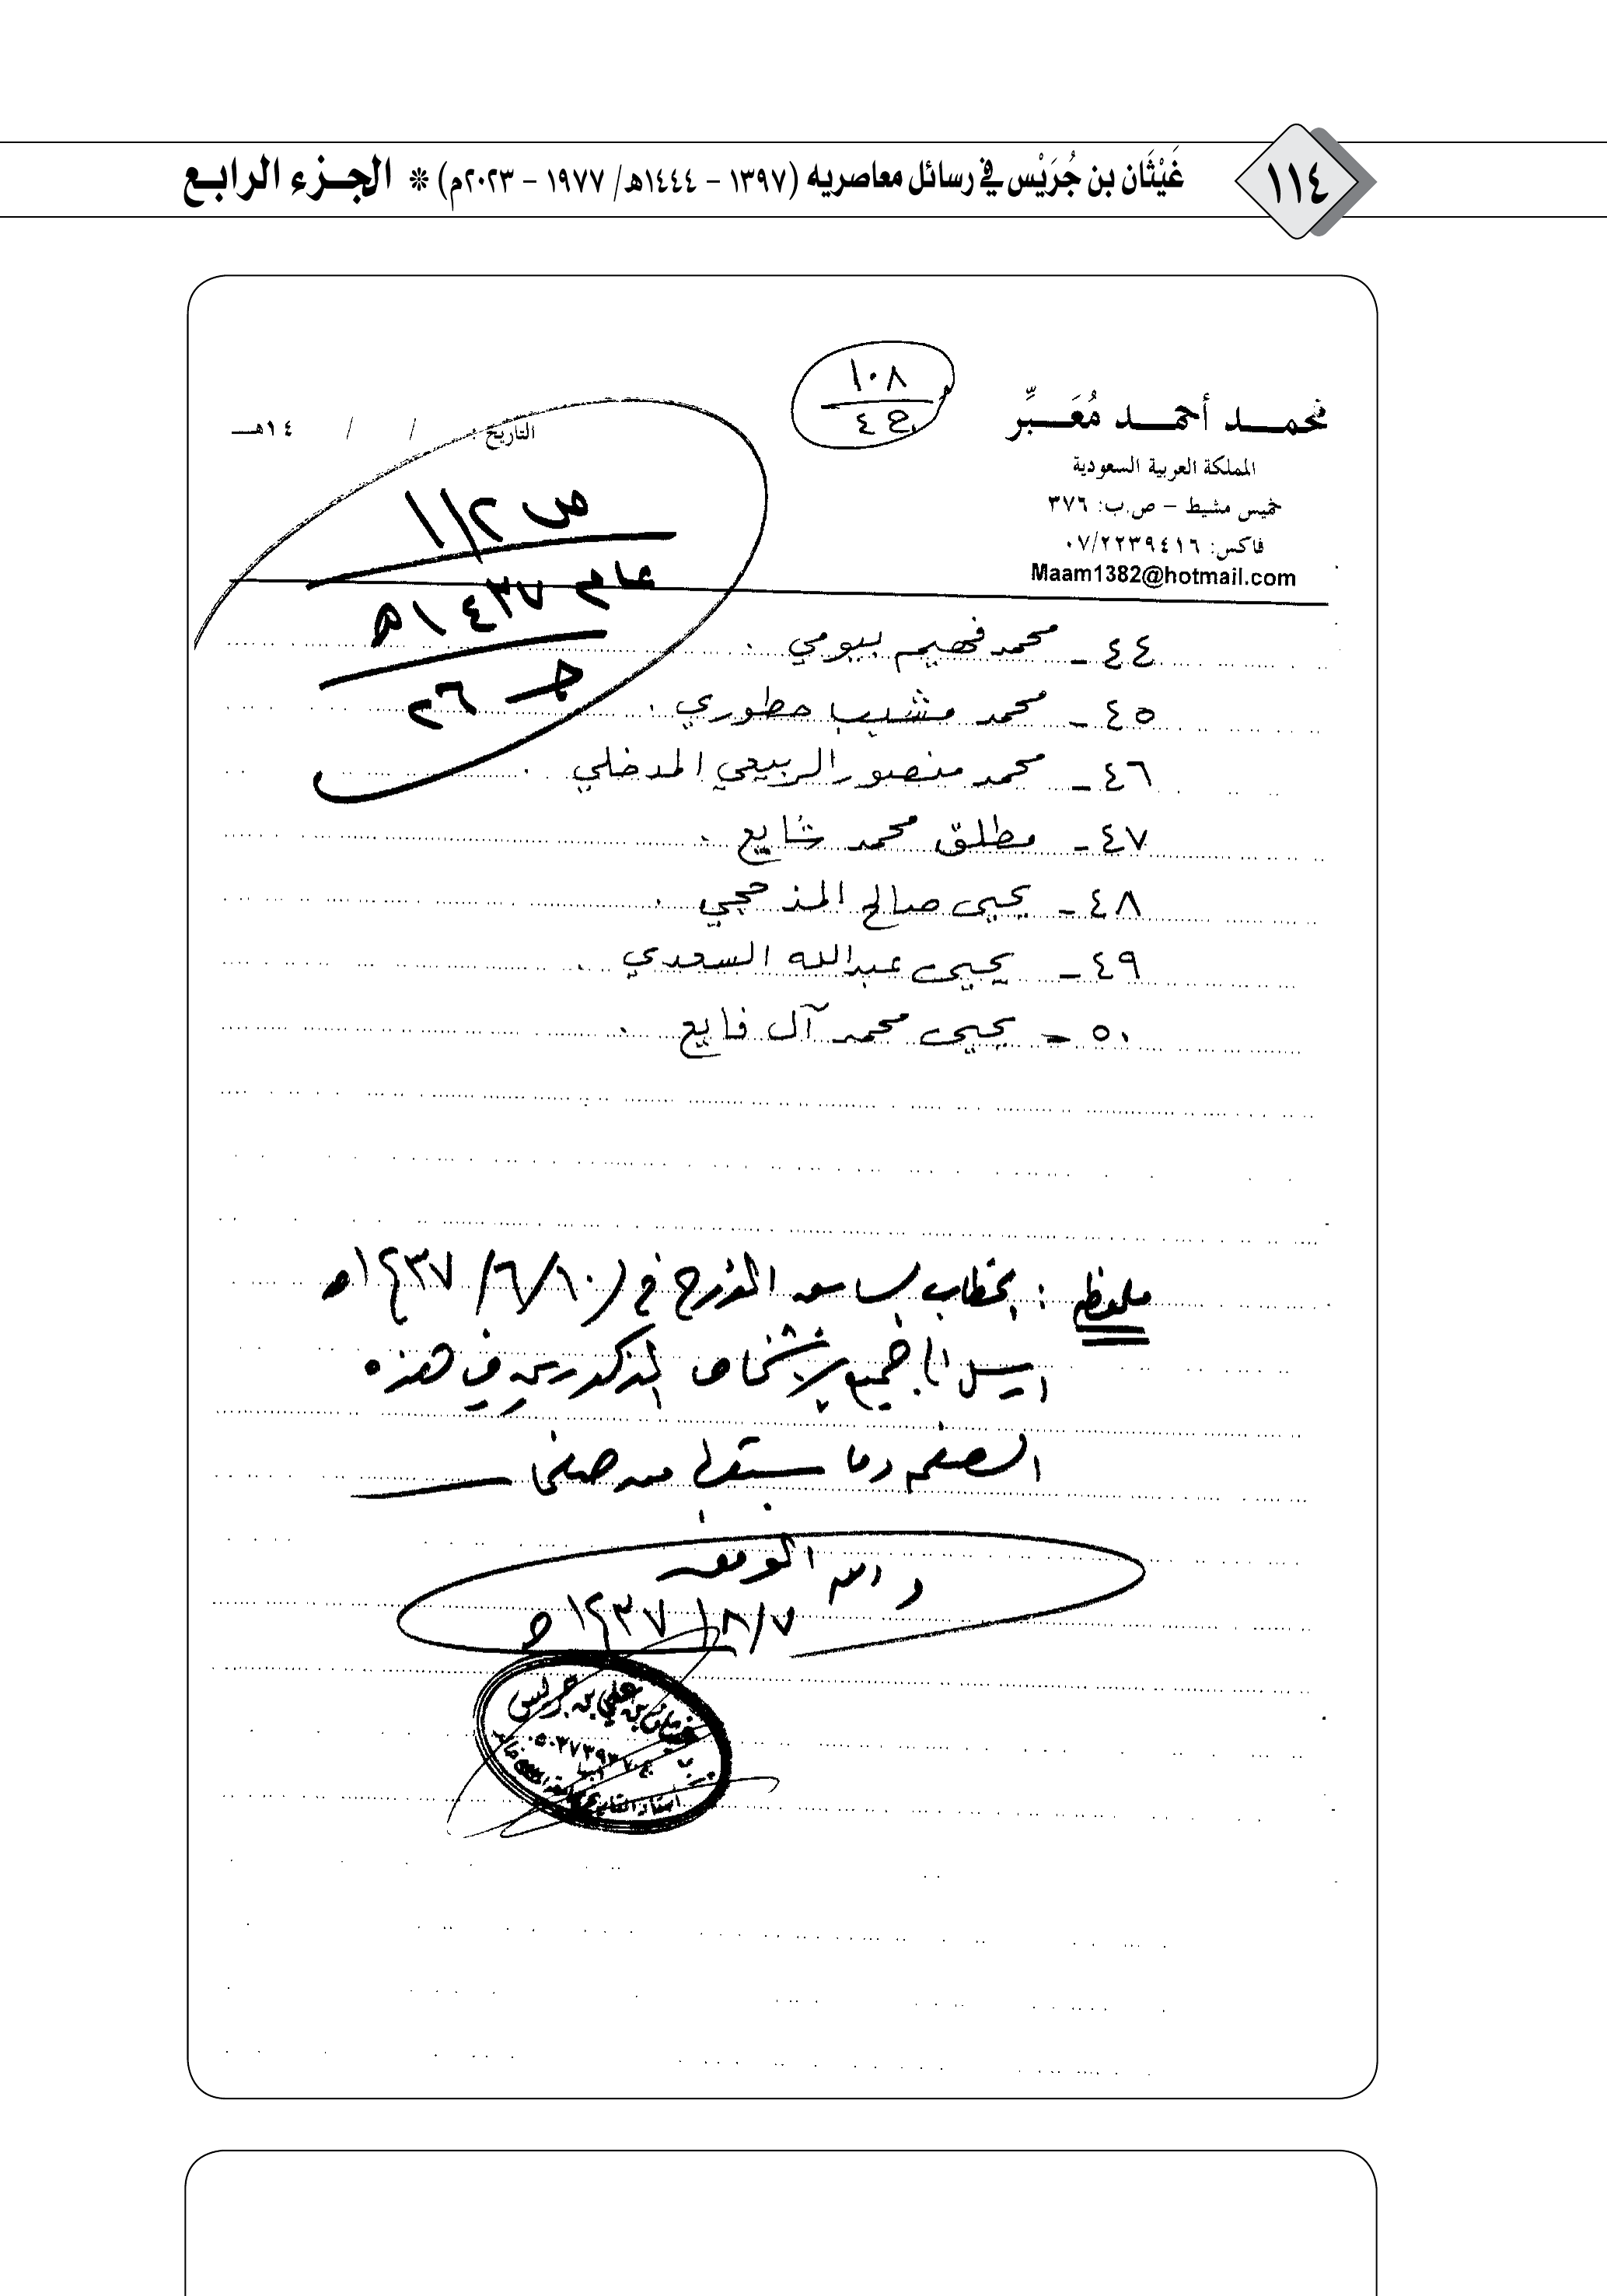 ١١٤
غَيْثَان بن جُرَيْس في رسائل معاصريه (١٣٩٧ - ١٤٤٤هـ/ ١٩٧٧ - ٢٠٢٣م) ❊ الجـزء الرابـع
محمـد أحمـد مُعَـبِّر
المملكة العربية السعودية
خميس مشيط - ص.ب: ٣٧٦
فاكس: ٠٧/٢٢٣٩٤١٦
Maam1382@hotmail.com
١٠٨
التاريخ: / / ١٤هـ
ص ١/٢
عام ١٤٣٧هـ
جـ ٢٦
٤٤ - محمد فهيم بيومي .
٤٥ - محمد مشبب حطوري .
٤٦ - محمد منصور الربيعي المدخلي .
٤٧ - مطلق محمد شايع .
٤٨ - يحيى صالح المذحجي .
٤٩ - يحيى عبدالله السعدي .
٥٠ - يحيى محمد آل فايع .
ملحوظة : خطاب المؤرخ في (١٠/٦/١٤٣٧هـ
لجميع الأشخاص المذكورين في هذه
الصفحة وما سبقها من صفحات
والله الموفق
٧/٨/١٤٣٧هـ
غيثان بن علي بن جريس
أبها
أستاذ التاريخ